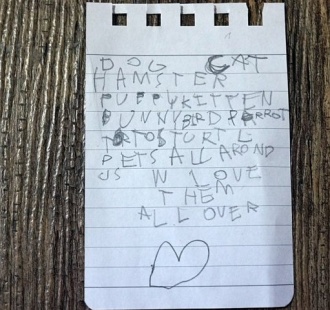 DOG CAT
HAMSTER
PUPPY KITTEN
BUNNY BIRD PARROT
TORTOS TURTL
PETS ALL AROND
US W LOVE
THEM
ALL OVER